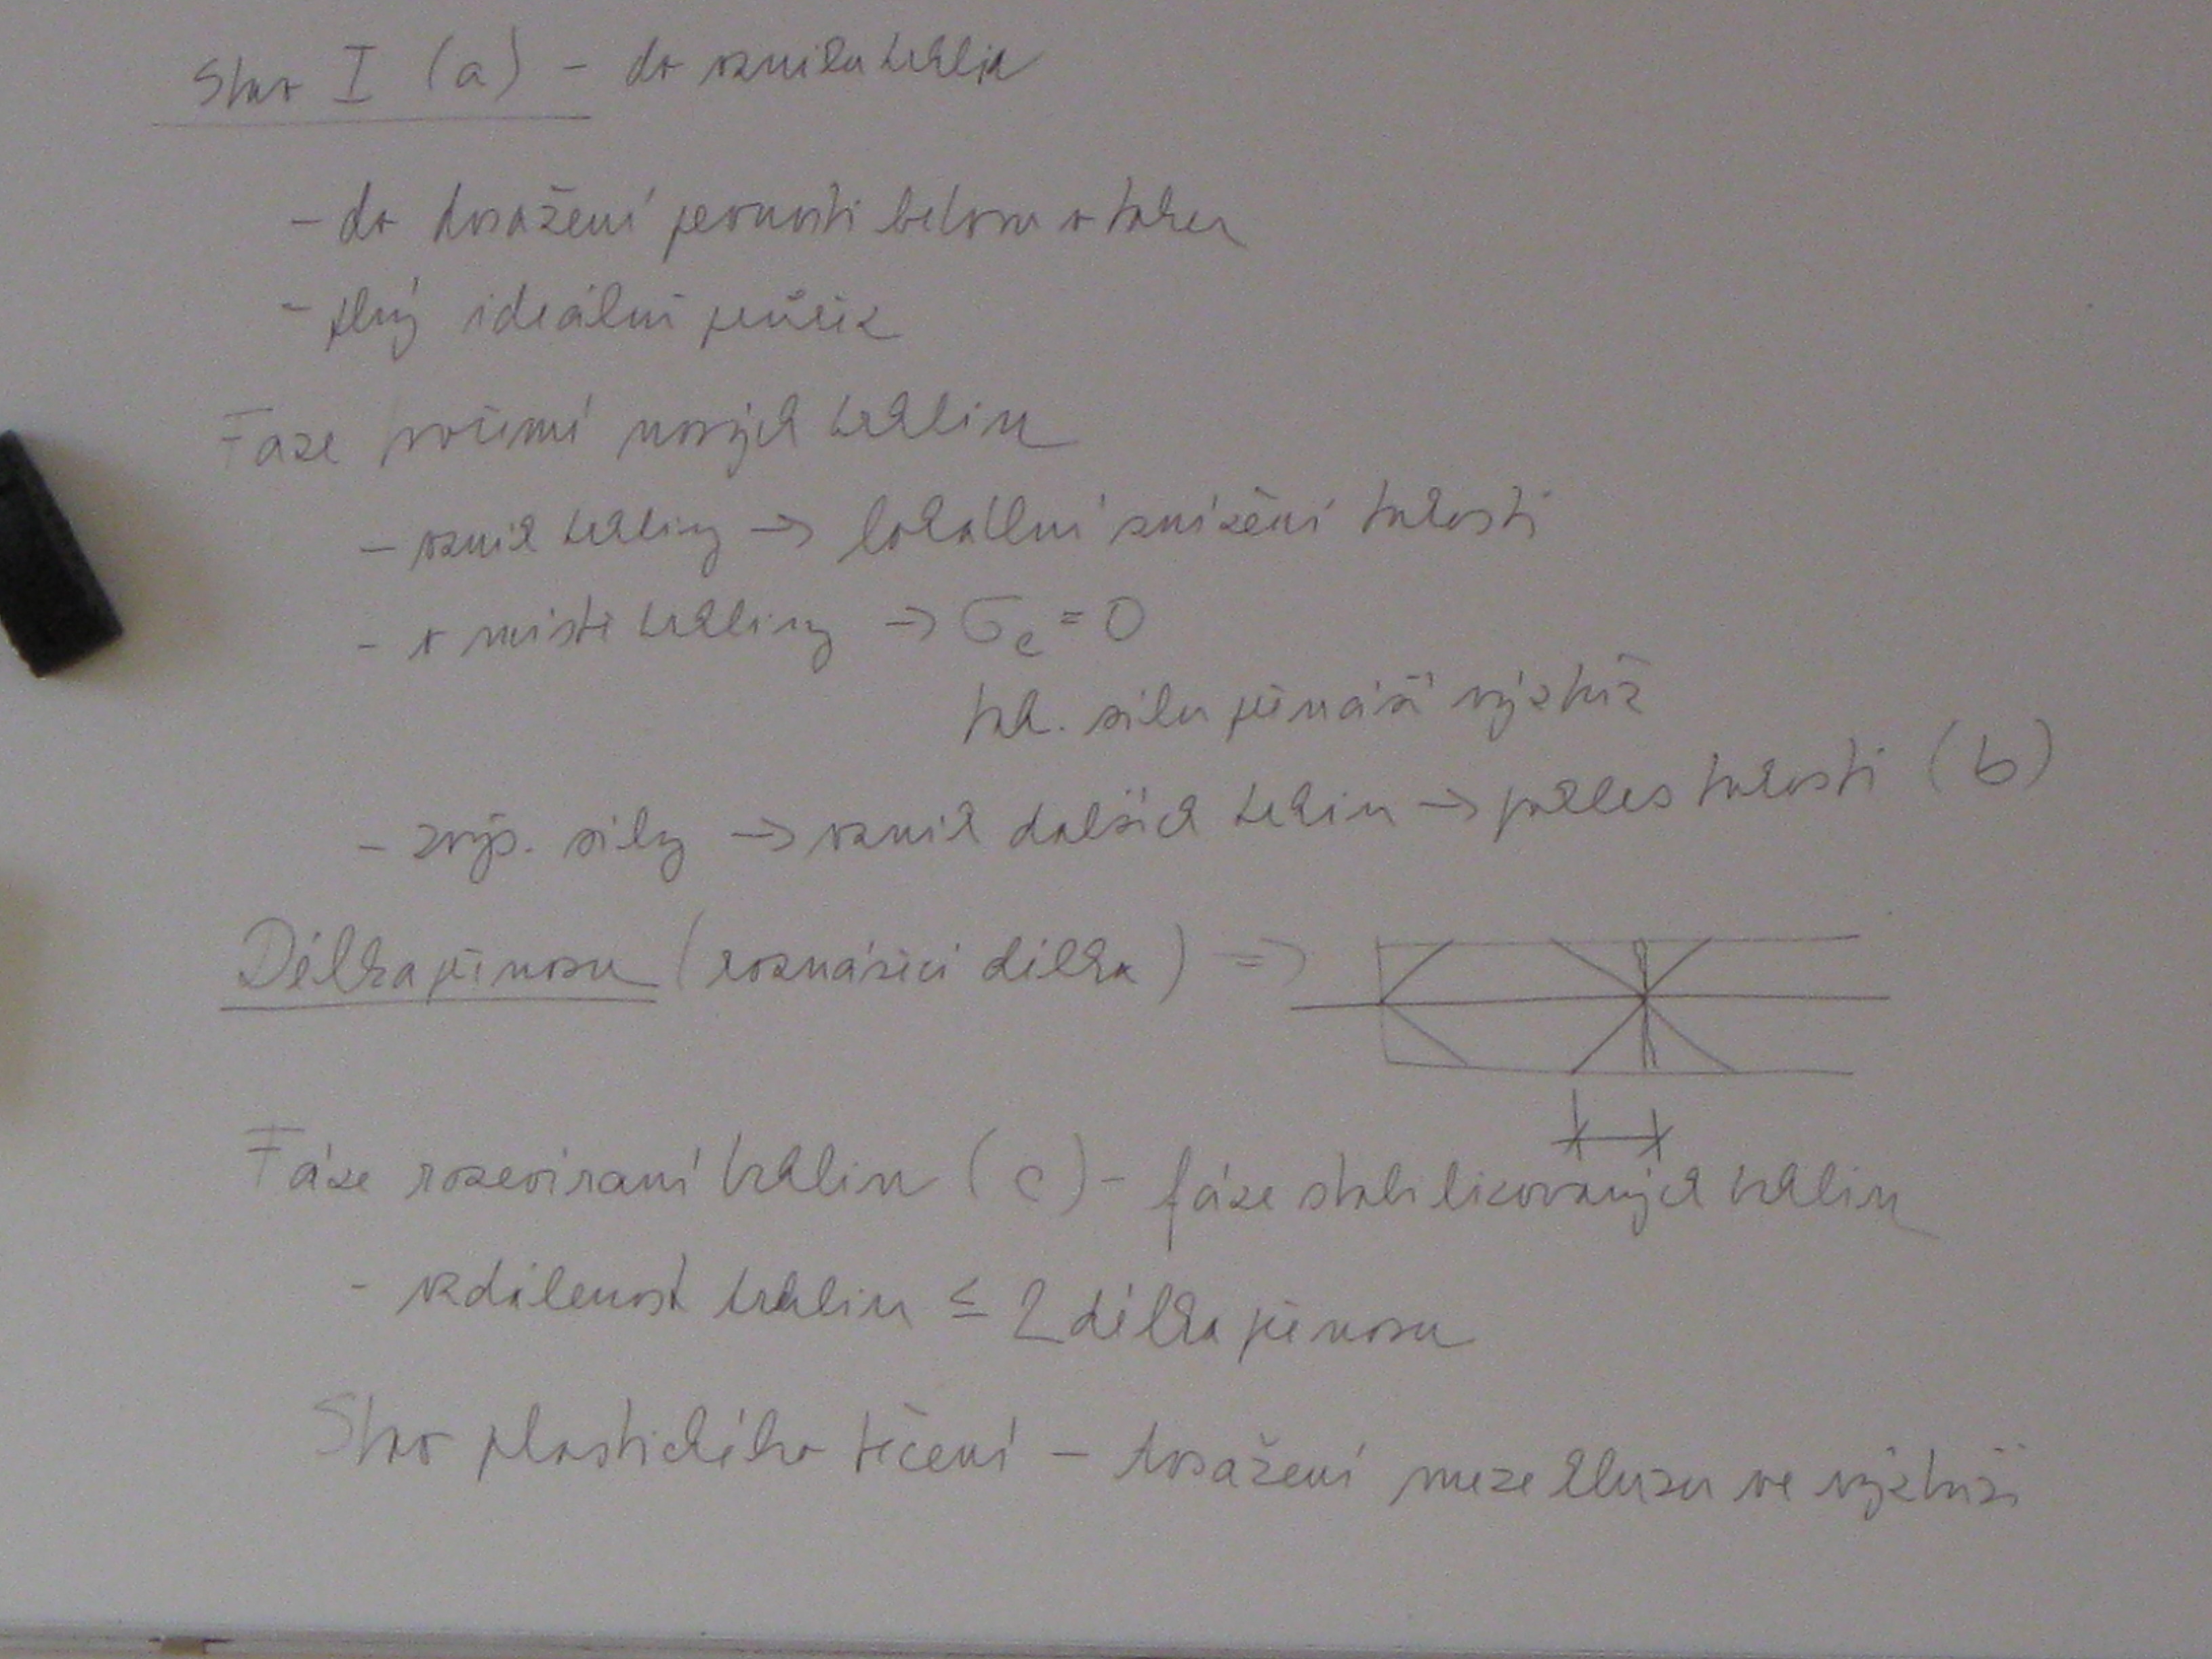 Stav I (a) - do vzniku trhlin
- do dosažení pevnosti betonu v tahu
- plný ideální průřez
Fáze tvoření nových trhlin
- vznik trhliny → lokální snížení tuhosti
- v místě trhliny → σc = 0
tah. sílu přenáší výztuž
- zvýš. síly → vznik dalších trhlin → pokles tuhosti (b)
Délka přenosu (roznášecí délka) =>
Fáze rozevíraní trhlin (c) - fáze stabilizovaných trhlin
- vzdálenost trhlin ≤ 2 délka přenosu
Stav plastického tečení - dosažení meze kluzu ve výztuži